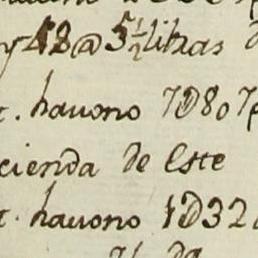 y 48@ 5½ libras
t. hauono 7D807
cienda de Este
t. hauono 1D32